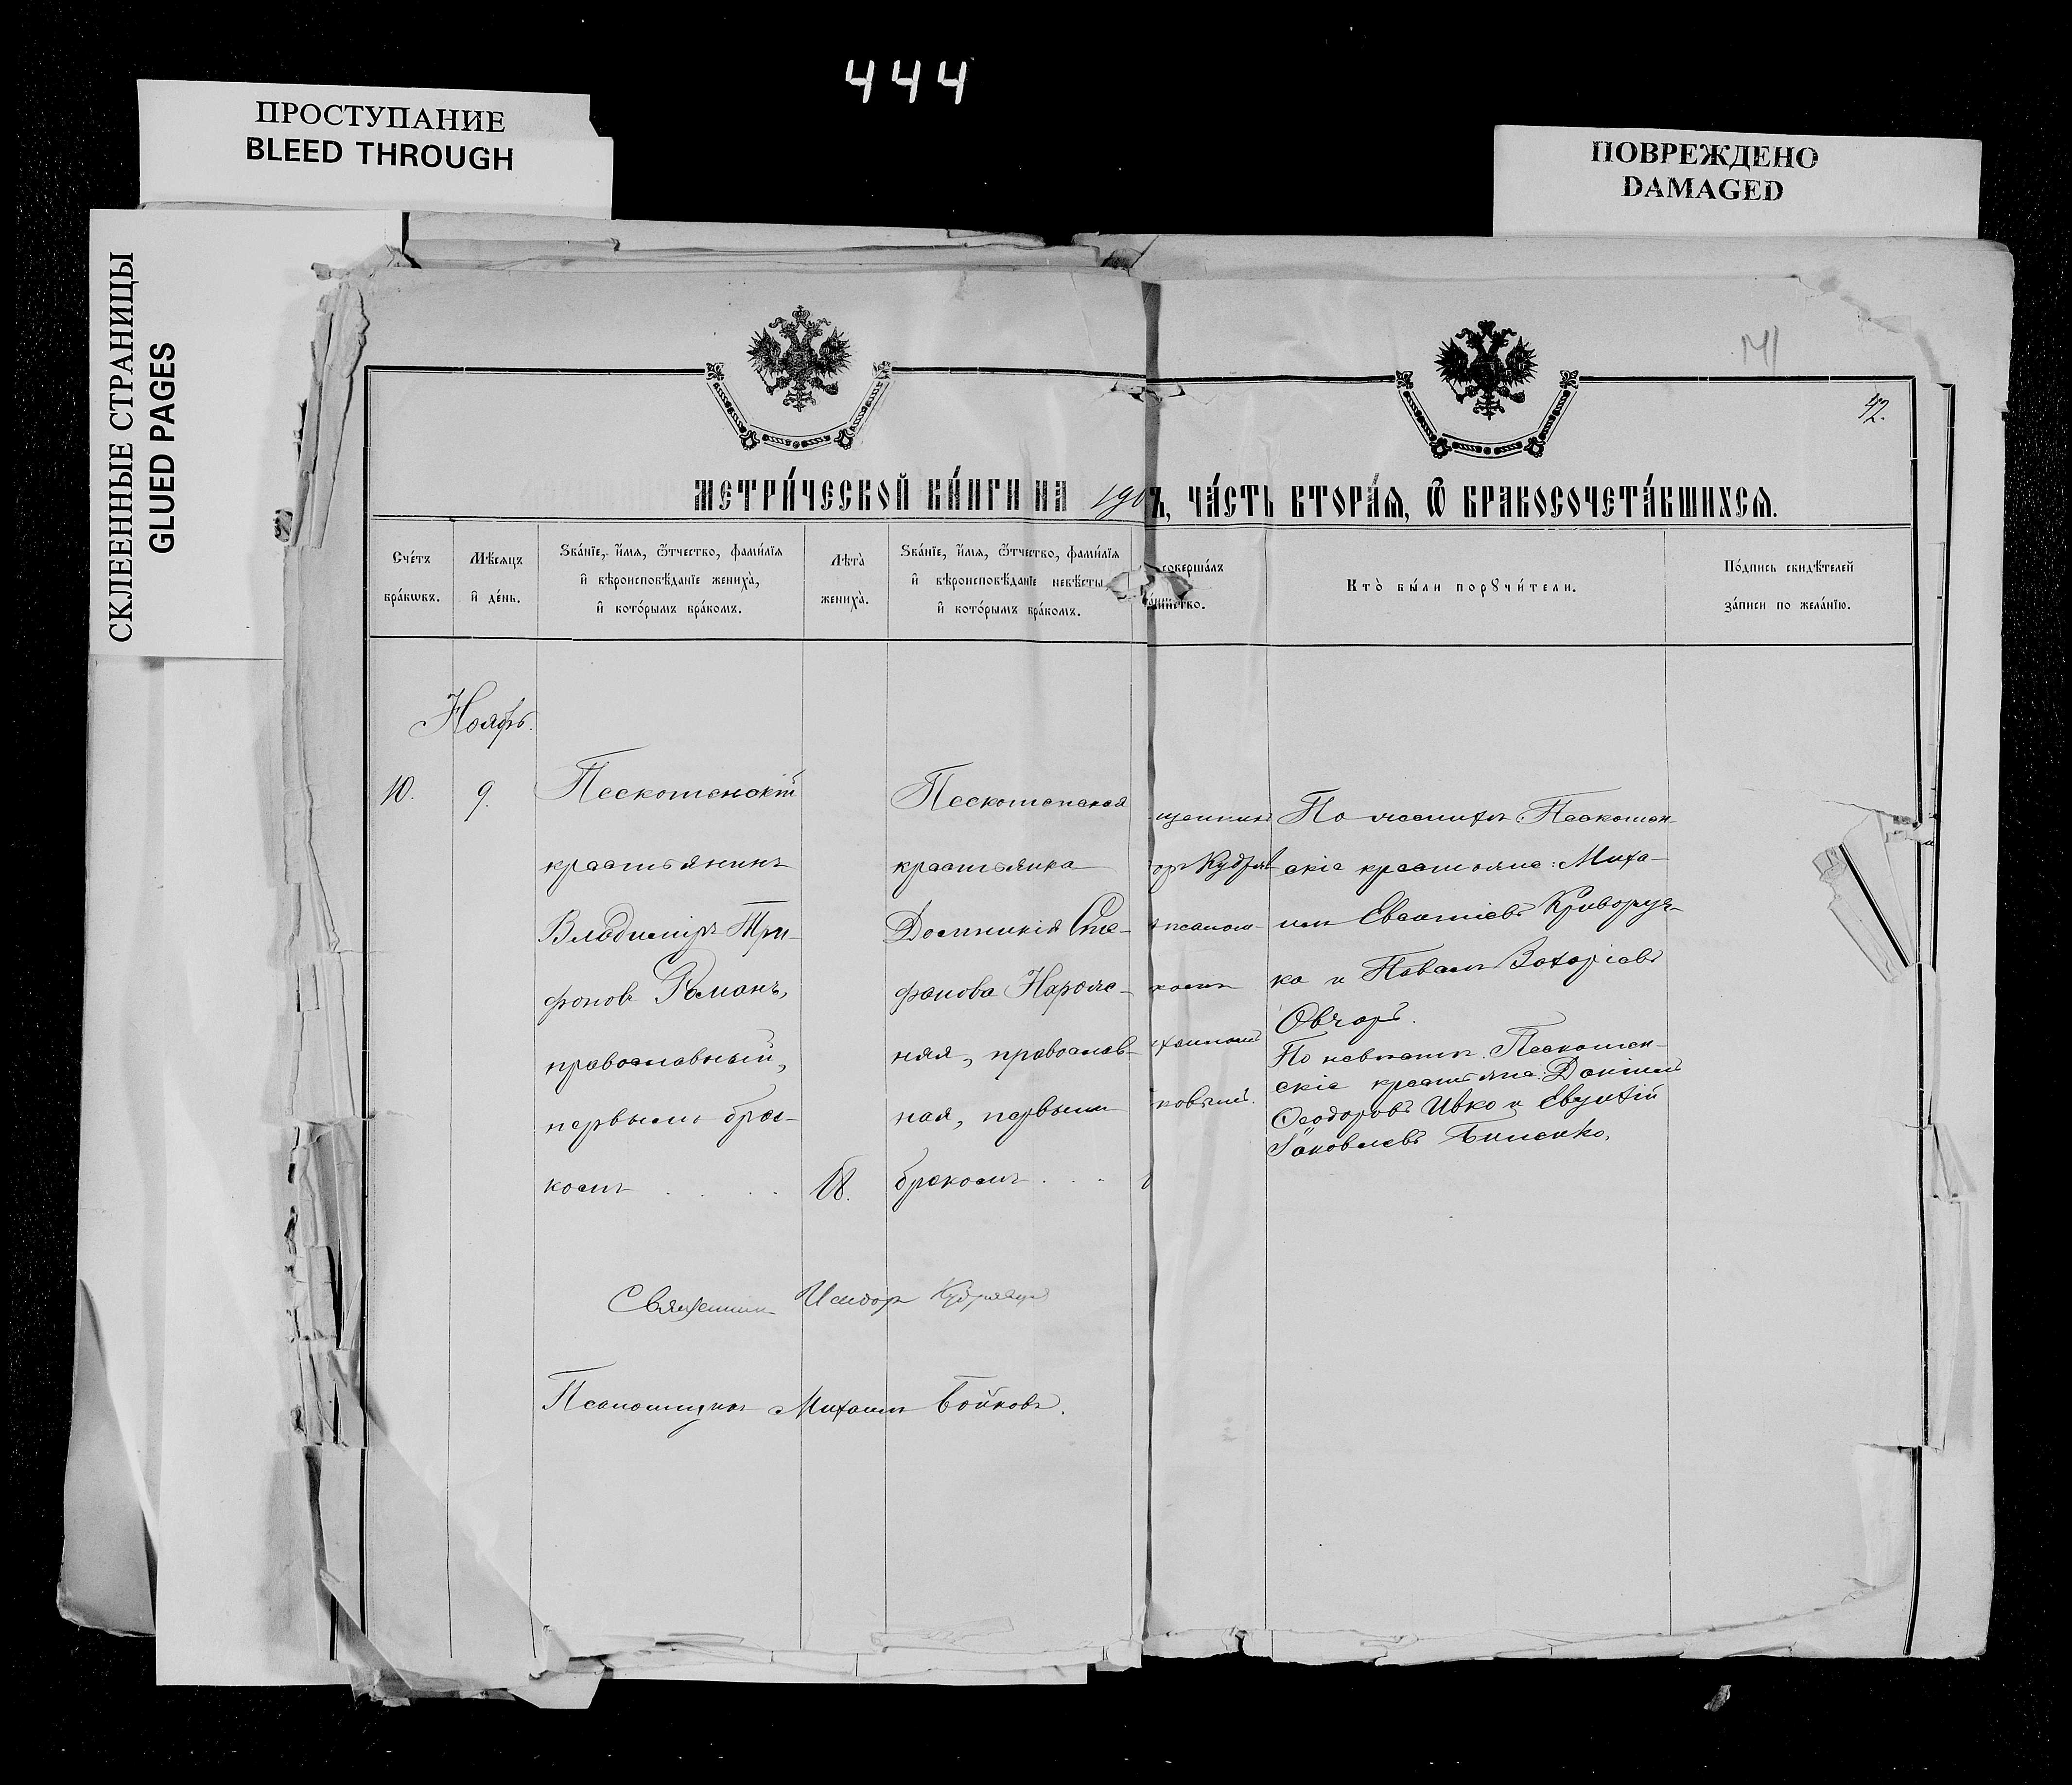 444
ПРОСТУПАНИЕ
BLEED THROUGH
ПОВРЕЖДЕНО
DAMAGED
СКЛЕЕННЫЕ СТРАНИЦЫ
GLUED PAGES
42.
МЕТРИ́ЧЕСКОЙ КНИ́ГИ НА 190
Ъ, ЧА́СТЬ ВТОРА́Я, Ѿ БРАКОСОЧЕТА́ВШИХСЯ.
Сче́тъ
бра́кѡвъ.
Мѣ́сяцъ
и҆ де́нь.
Ѕва́нїе, и҆́мя, ѻ҆́тчество, фами́лїя
и҆ вѣроисповѣ́данїе жениха̀,
и҆ кото́рымъ бра́комъ.
Лѣта̀
жениха̀.
Ѕва́нїе, и҆́мя, ѻ҆́тчество, фами́лїя
и҆ вѣроисповѣ́данїе невѣ́сты
и҆ кото́рымъ бра́комъ.
соверша́лъ
та́инство.
Кто̀ бы́ли порꙋчи́тели.
По́дпись свидѣ́телей
за́писи по жела́нїю.
Ноябрь.
10.
9.
Пескошенскій
крестьянинъ
Владиміръ Три-
фоновъ Романъ,
православный,
первымъ бра-
комъ . . . .
18.
Пескошенская
крестьянка
Домникія Сте-
фанова
няя, православ-
ная, первымъ
бракомъ . . .
щенникъ
оръ Кудряв
псалом-
комъ
хаиломъ
ковымъ.
По женихѣ: Пескошен-
скіе крестьяне: Миха-
илъ Криворуч-
ко и Павелъ Захаріевъ
Овчаръ.
По невѣстѣ: Пескошен-
скіе крестьяне: Даніилъ
Ѳеодоровъ Ивко и Евѳимій
Іаковлевъ Биленко.
Священникъ Исидоръ
Псаломщикъ Михаилъ Бойковъ.